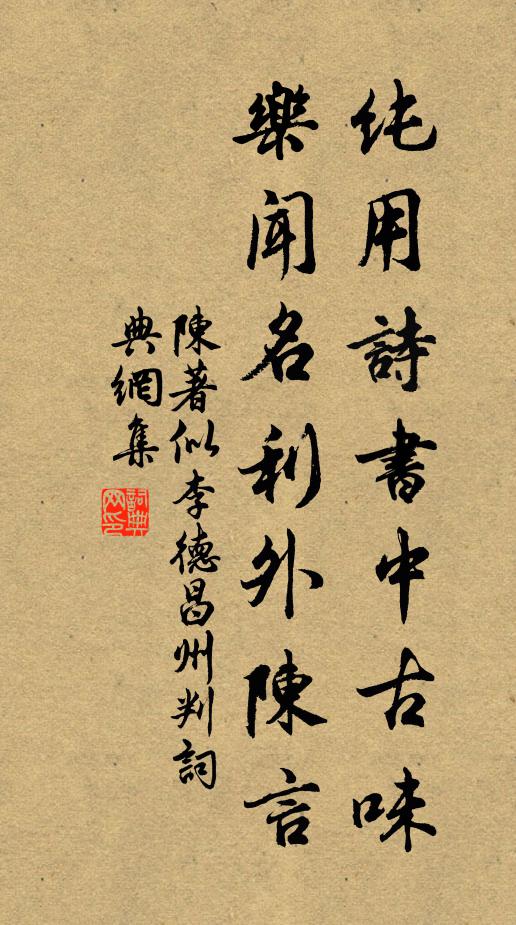 纯用詩書中古味
樂聞名利外陳言
陳著似李德昌州判詞
典網集
詞典网印